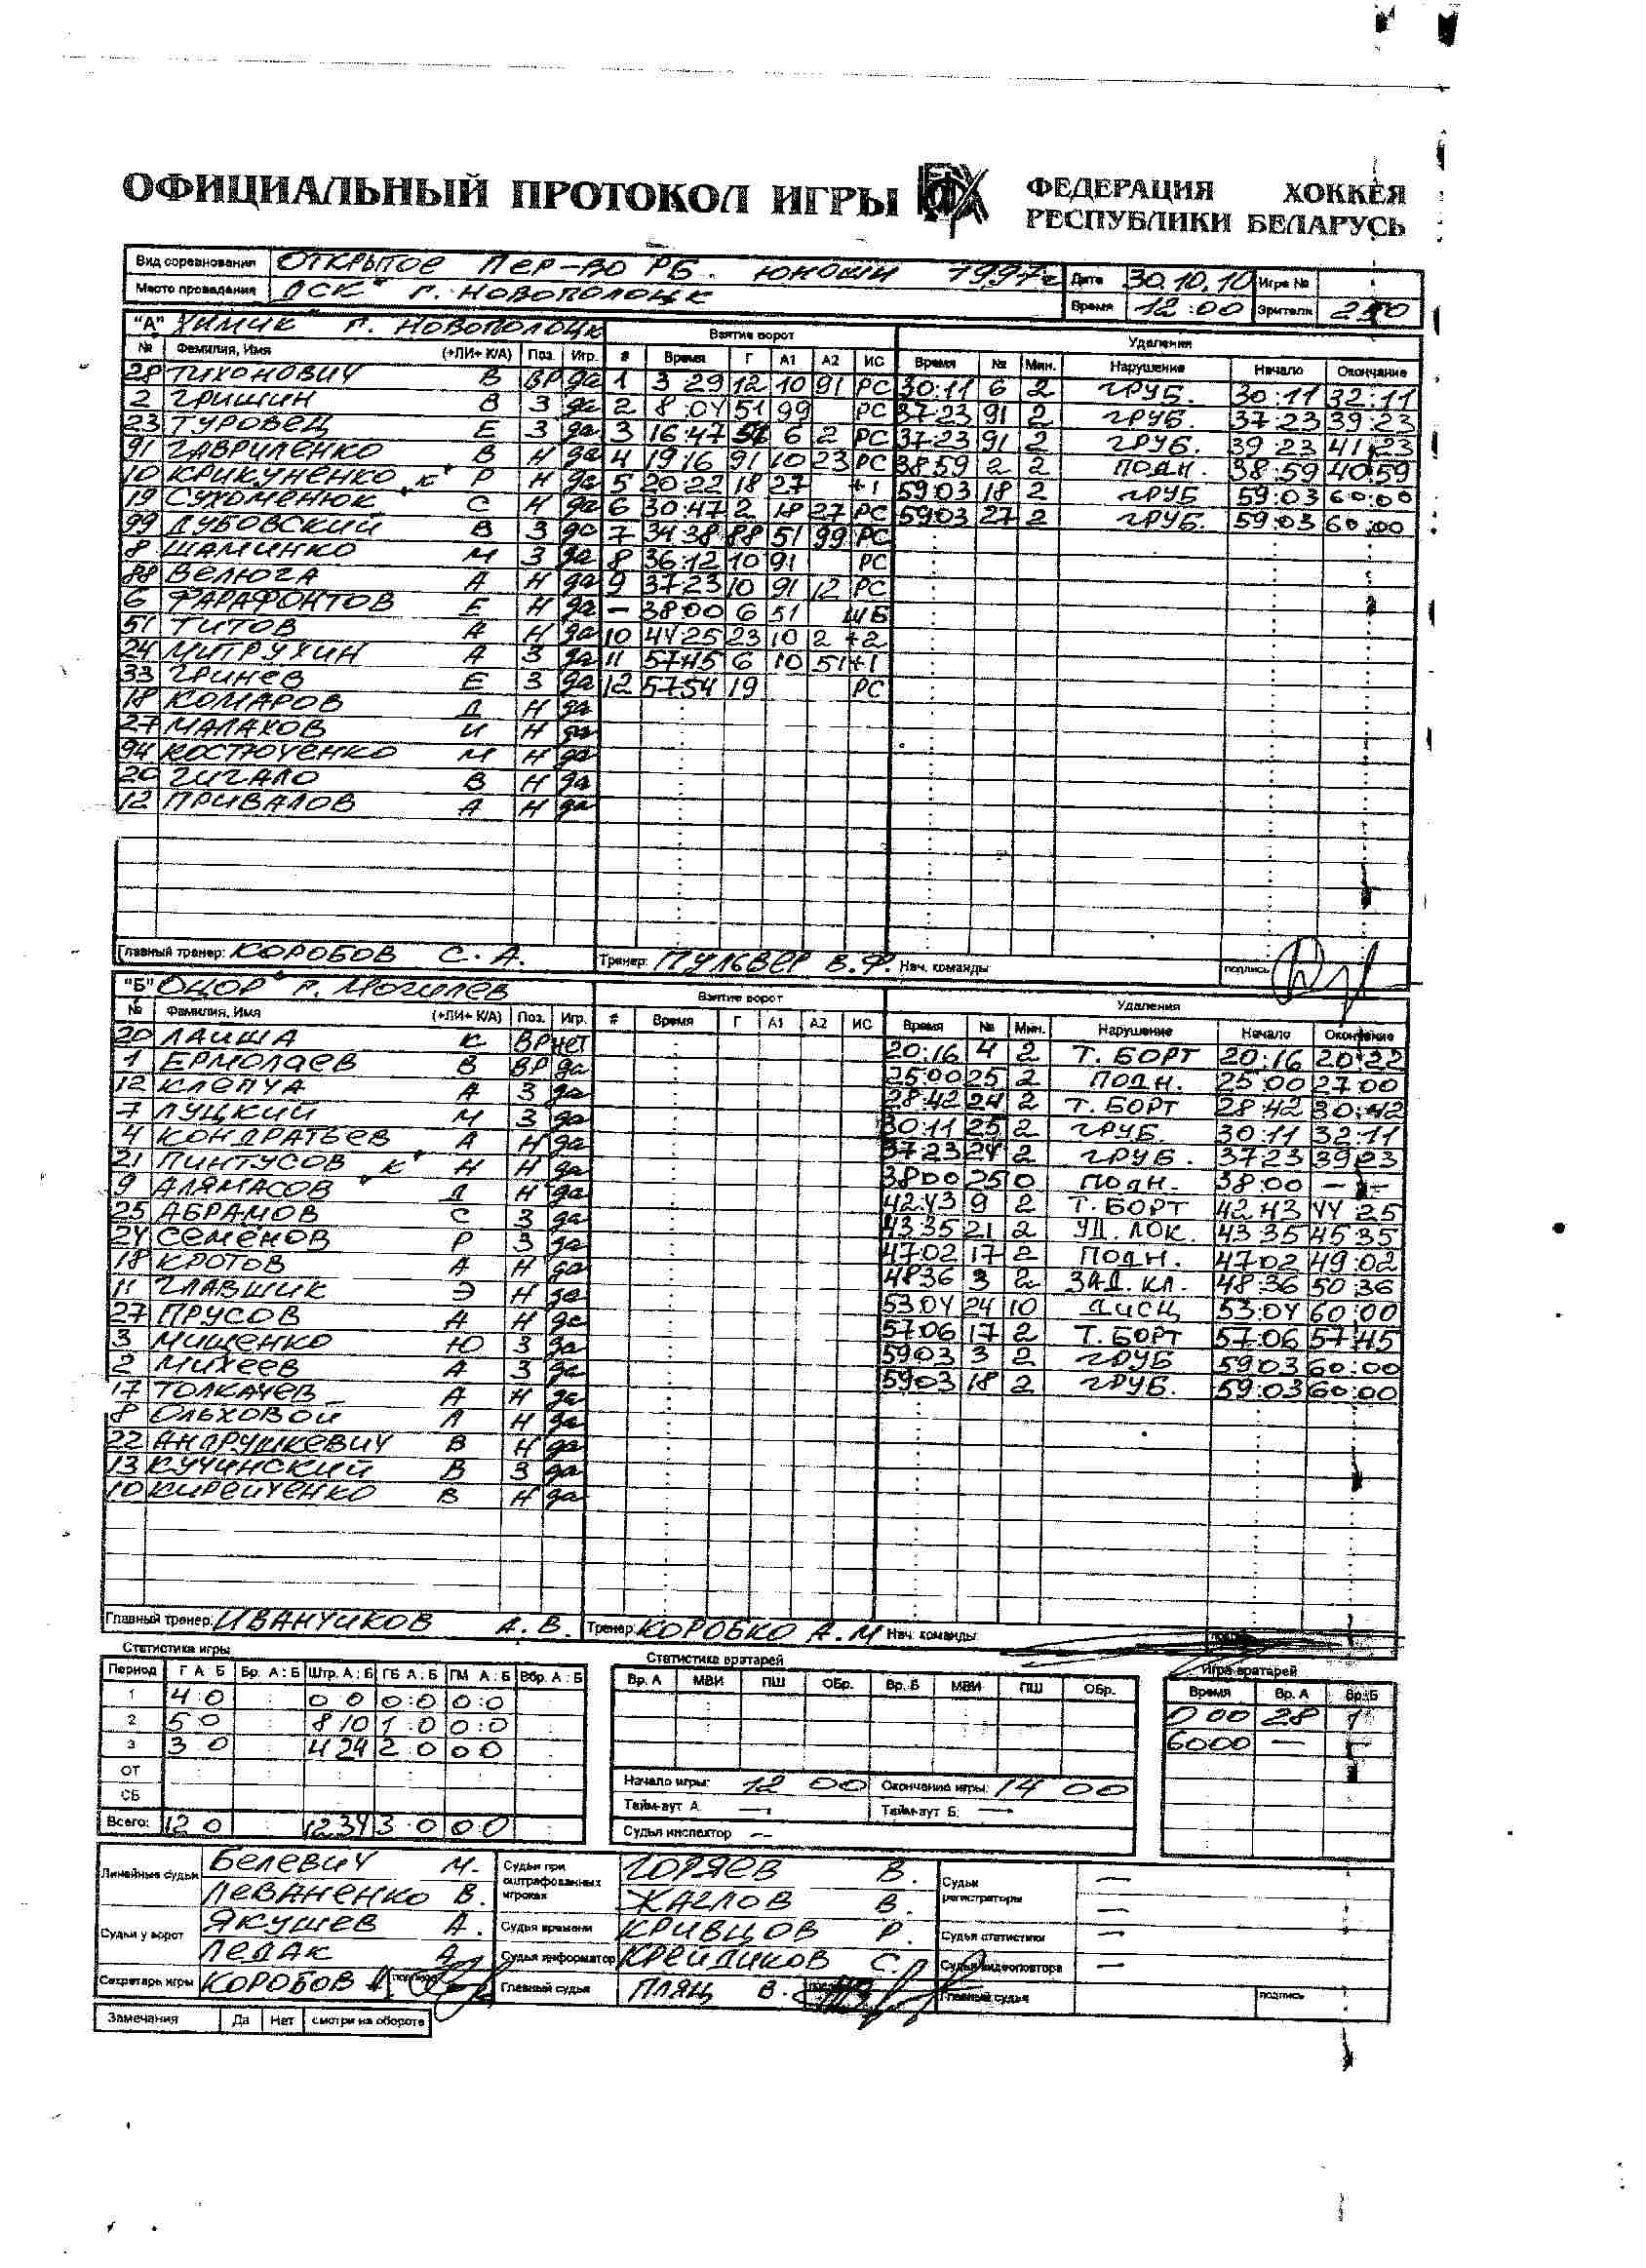 ОФИЦИАЛЬНЫЙ ПРОТОКОЛ ИГРЫ ФЕДЕРАЦИЯ ХОККЕЯ
РЕСПУБЛИКИ БЕЛАРУСЬ
Вид соревнования ОТКРЫТОЕ ПЕР-ВО РБ. ЮНОШИ 1997г Дата 30.10.10 Игра №
Место проведения ЛСК" г. НОВОПОЛОЦК Время 12:00 Зрители
"А" ХИМИК" г. НОВОПОЛОЦК Взятие ворот Удаления
№ Фамилия, Имя (+ЛИ+ К/А) Поз. Игр. # Время Г А1 А2 ИС Время № Мин. Нарушение Начало Окончание
28 ТИХОНОВИЧ В ВР да 1 3 29 12 10 91 РС 30:11 6 2 ГРУБ. 30:11 32:11
2 ГРИШИН В З да 2 8:04 51 99 РС 37:23 91 2 ГРУБ. 37:23 39:23
23 ТУРОВЕЦ Е З да 3 16:47 6 2 РС 37:23 91 2 ГРУБ. 39:23 41:23
91 ГАВРИЛЕНКО В Н да 4 19 16 91 10 23 РС 38:59 2 2 ПОДН. 38:59 40:59
10 КРИКУНЕНКО "К" Р Н да 5 20:22 18 27 +1 59:03 18 2 ГРУБ 59:03 60:00
19 СУХОМЕНЮК С Н да 6 30:47 2 18 27 РС 59:03 27 2 ГРУБ. 59:03 60:00
99 ДУБОВСКИЙ В З да 7 34:38 88 51 99 РС
8 ШАМИНКО М З да 8 36:12 10 91 РС
88 ВЕЛЮГА А Н да 9 37:23 10 91 12 РС
6 ФАРАФОНТОВ Е Н да – 38:00 6 51 ШБ
51 ТИТОВ А Н да 10 44 25 23 10 2 +2
24 МИТРУХИН А З да 11 57:45 6 10 51 +1
33 ГРИНЕВ Е З да 12 57:54 19 РС
18 КОМАРОВ Д Н да
27 МАЛАХОВ И Н да
94 КОСТЮЧЕНКО М Н да
20 ГИГАЛО В Н да
12 ПРИВАЛОВ А Н да
Главный тренер: КОРОБОВ С. А. Тренер: ПУЛЬВЕР В.Ф. Нач. команды подпись
"Б" ОЦОР" г. МОГИЛЕВ Взятие ворот Удаления
№ Фамилия, Имя (+ЛИ+ К/А) Поз. Игр. # Время Г А1 А2 ИС Время № Мин. Нарушение Начало Окончание
20 ЛАИША К ВР нет 20:16 4 2 Т. БОРТ 20:16 20:22
1 ЕРМОЛАЕВ В ВР да 25:00 25 2 ПОДН. 25:00 27:00
12 КЛЕПЧА А З да 28:42 24 2 Т. БОРТ 28:42 30:42
7 ЛУЦКИЙ М З да 30:11 25 2 ГРУБ. 30:11 32:11
4 КОНДРАТЬЕВ А Н да 37:23 24 2 ГРУБ. 37:23 39:23
21 ПИНТУСОВ "К" Н Н да 38:00 25 0 ПОДН. 38:00 – –
9 АЛЯМАСОВ Д Н да 42:43 9 2 Т. БОРТ 42:43 44 25
25 АБРАМОВ С З да 43:35 21 2 УД. ЛОК. 43 35 45 35
24 СЕМЕНОВ Р З да 47:02 17 2 ПОДН. 47:02 49:02
18 КРОТОВ А Н да 48:36 3 2 ЗАД. КЛ. 48:36 50:36
11 ГЛАВШИК Э Н да 53:04 24 10 ДИСЦ 53:04 60:00
27 ПРУСОВ А Н да 57:06 17 2 Т. БОРТ 57:06 57:45
3 МИЩЕНКО Ю З да 59:03 3 2 ГРУБ 59:03 60:00
2 МИХЕЕВ А З да 59:03 18 2 ГРУБ. 59:03 60:00
17 ТОЛКАЧЕВ А Н да
8 ОЛЬХОВОЙ А Н да
22 АНДРУШКЕВИЧ В Н да
13 КУЧИНСКИЙ В З да
10 КИРЕЙЧЕНКО В Н да
Главный тренер: ИВАНЧИКОВ А. В. Тренер: КОРОБКО А.М Нач. команды
Статистика игры Статистика вратарей Игра вратарей
Период Г А Б Бр. А : Б Штр. А : Б ГБ А : Б ГМ А : Б Вбр. А : Б Вр. А МВИ ПШ ОБр. Вр. Б МВИ ПШ ОБр. Время Вр. А Вр. Б
1 4 0 0 0 0:0 0:0 0 00 28 1
2 5 0 8 10 1:0 0:0 6000 –
3 3 0 4 24 2:0 0 0
ОТ
СБ
Всего: 12 0 12 34 3:0 0:0
Начало игры: 12 00 Окончание игры: 14 00
Тайм-аут А Тайм-аут Б:
Судья инспектор
Линейные судьи БЕЛЕВИЧ М. Судьи при оштрафованных игроках ГОРЯЕВ В. Судьи регистраторы
ЛЕВАНЕНКО В. ЖАГЛОВ В.
Судьи у ворот ЯКУШЕВ А. Судья времени КРИВЦОВ Р. Судья статистики
ЛЕДАК А Судья информатор КРЕЙДИКОВ С. Судья видеоповтора
Секретарь игры КОРОБОВ Главный судья ПЛЯЦ В. Главный судья подпись
Замечания Да Нет смотри на обороте